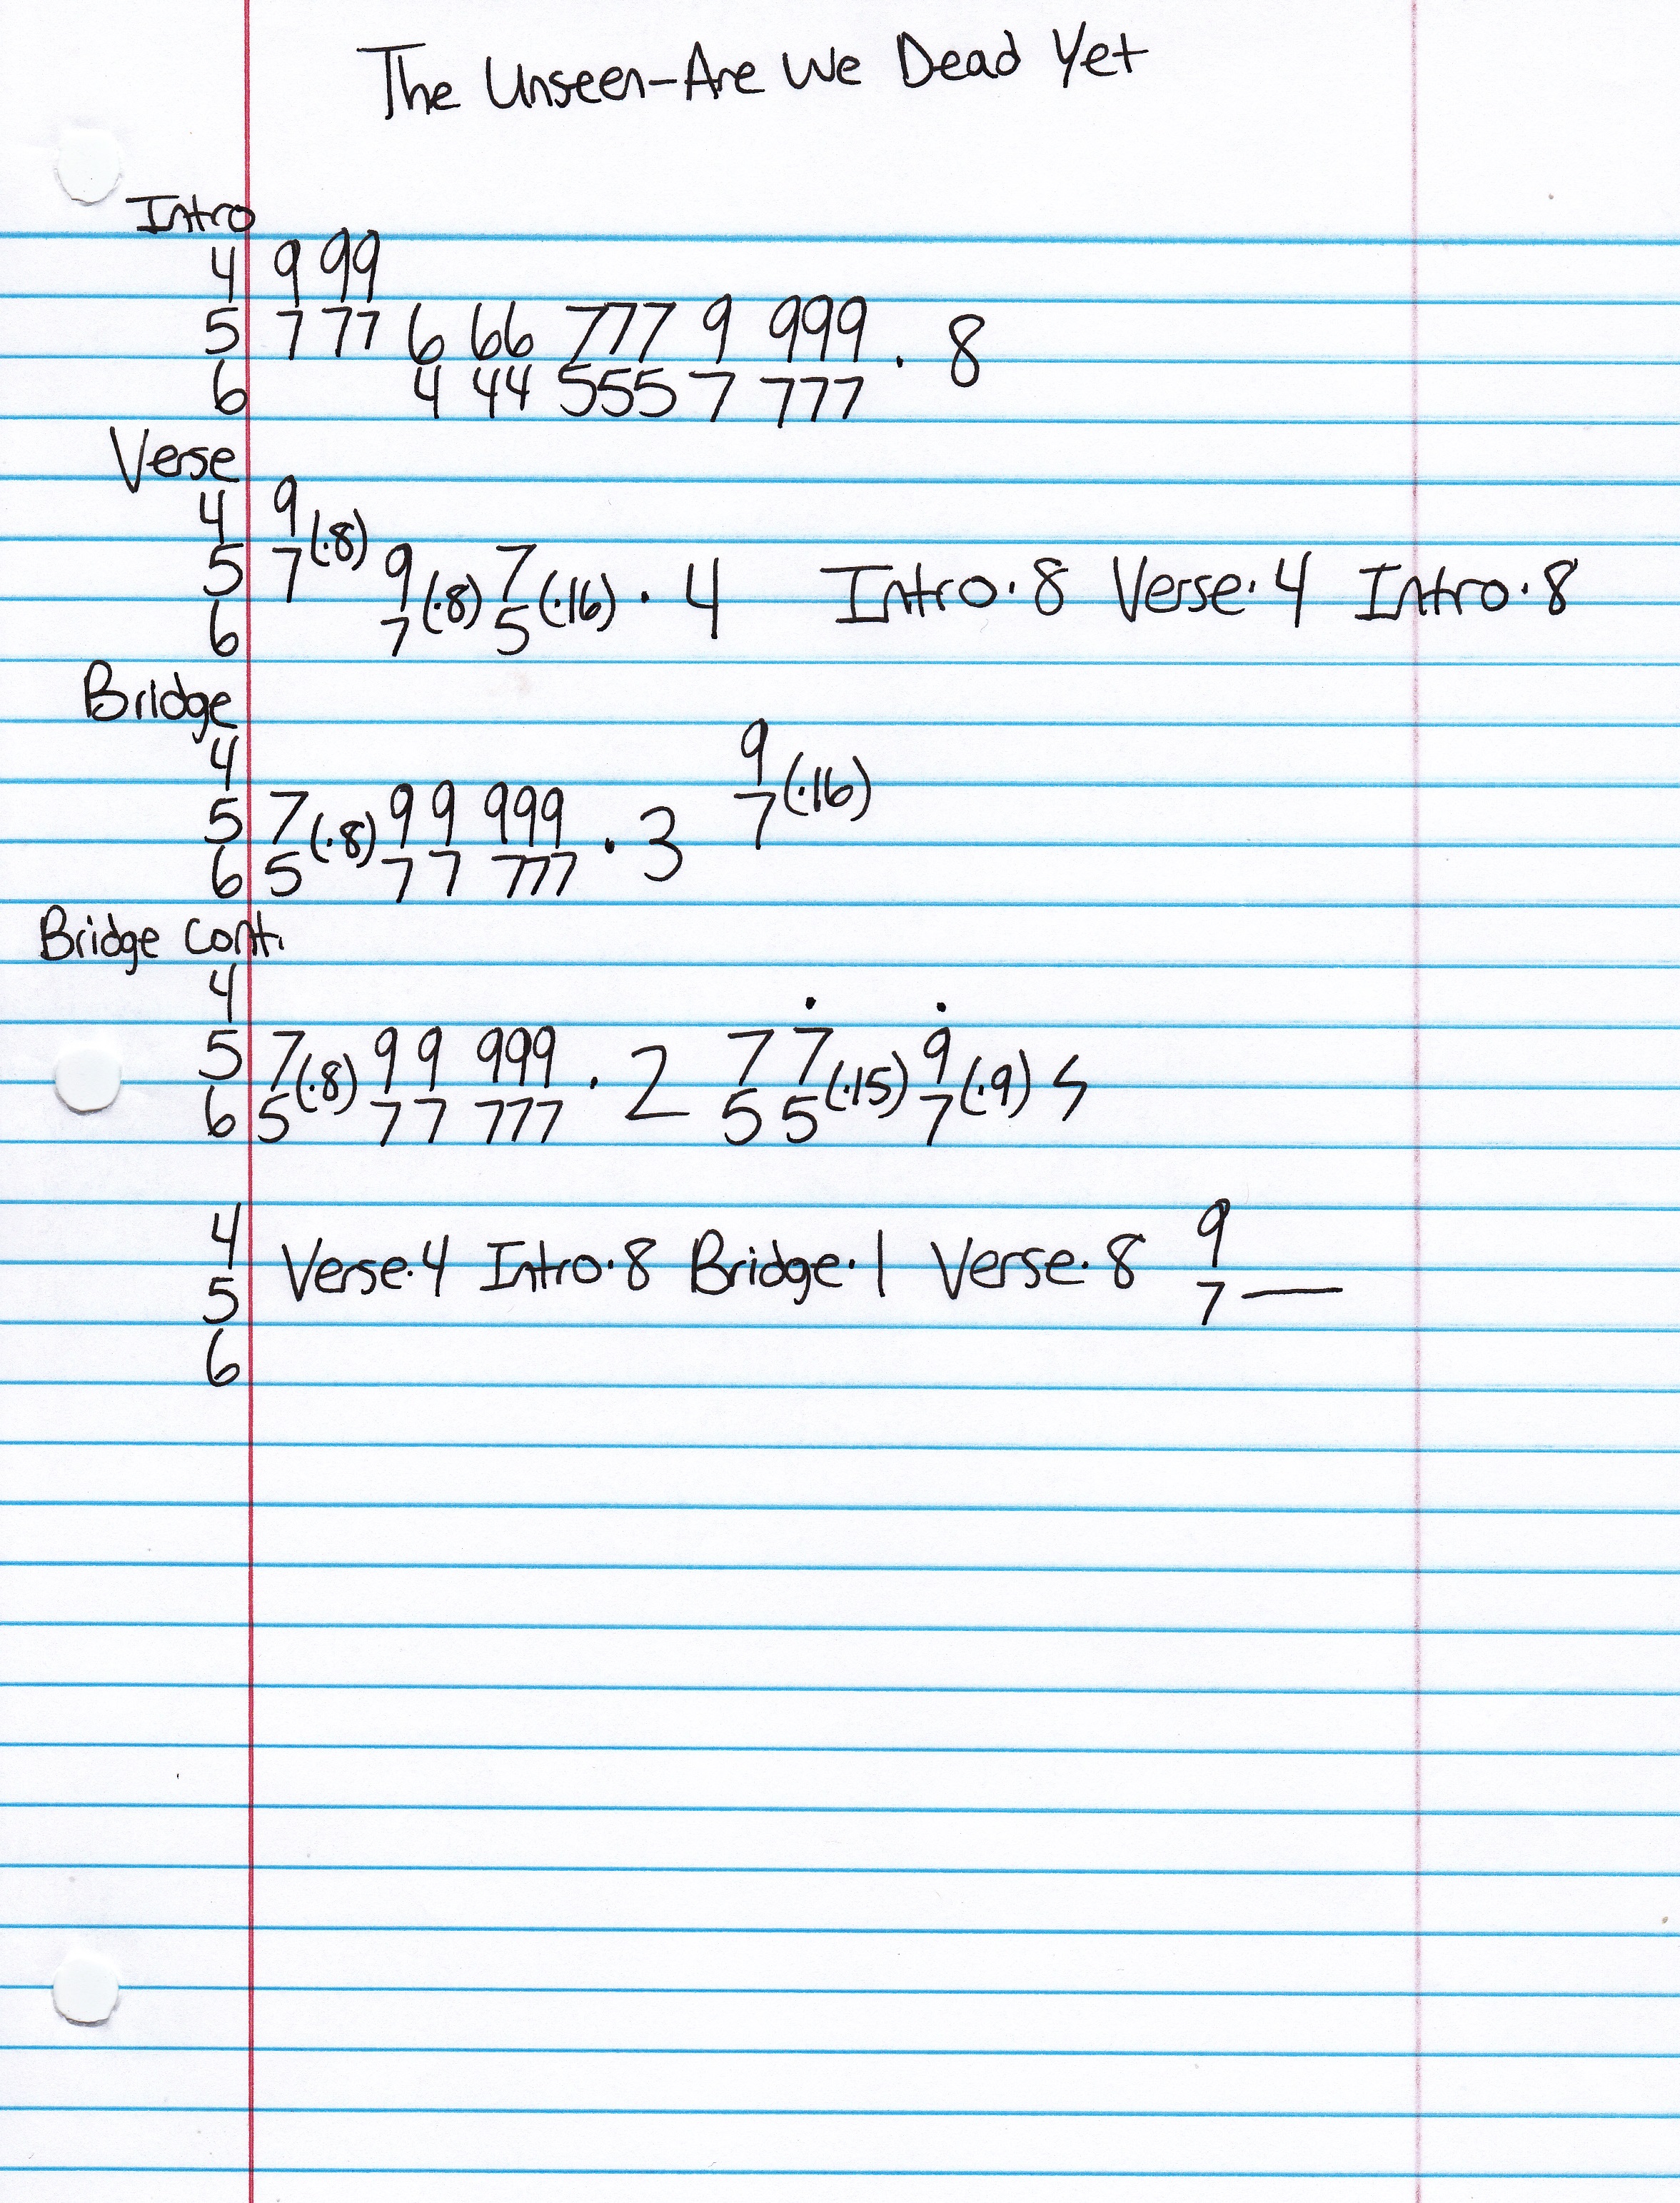 The Unseen-Are We Dead Yet
Intro
4 9 99
5 7 77 6 66 777 9 999 · 8
6 4 44 555 7 777
Verse
4 9
5 7(·8) 9 7
6 7(·8) 5(·16) · 4 Intro·8 Verse·4 Intro·8
Bridge
4 9
5 7 9 9 999 · 3 7(·16)
6 5(·8) 7 7 777
Bridge Cont.
4
5 7 9 9 999 · 2 7 7 9
6 5(·8) 7 7 777 5 5(·15) 7(·9)
4 9
5 Verse·4 Intro·8 Bridge·1 Verse·8 7—
6